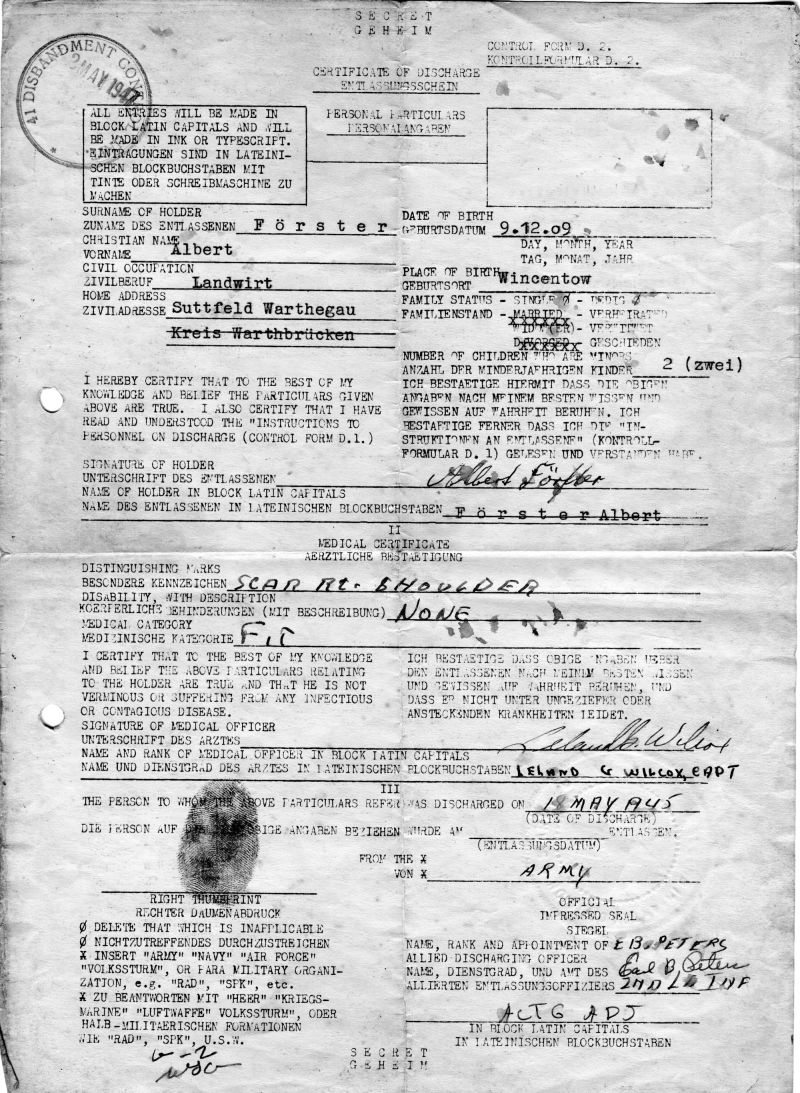 SECRET
GEHEIM
CONTROL FORM D. 2.
KONTROLLFORMULAR D. 2.
41 DISBANDMENT CON
2 MAY 1947
CERTIFICATE OF DISCHARGE
ENTLASSUNGSSCHEIN
ALL ENTRIES WILL BE MADE IN
BLOCK LATIN CAPITALS AND WILL
BE MADE IN INK OR TYPESCRIPT.
EINTRAGUNGEN SIND IN LATEINI-
SCHEN BLOCKBUCHSTABEN MIT
TINTE ODER SCHREIBMASCHINE ZU
MACHEN
PERSONAL PARTICULARS
PERSONALANGABEN
SURNAME OF HOLDER
ZUNAME DES ENTLASSENEN Förster
CHRISTIAN NAME
VORNAME Albert
CIVIL OCCUPATION
ZIVILBERUF Landwirt
HOME ADDRESS
ZIVILADRESSE Suttfeld Warthegau
Kreis Warthbrücken
DATE OF BIRTH
GEBURTSDATUM 9.12.09
DAY, MONTH, YEAR
TAG, MONAT, JAHR
PLACE OF BIRTH
GEBURTSORT Wincentow
FAMILY STATUS - SINGLE Ø - LEDIG Ø
FAMILIENSTAND - MARRIED - VERHEIRATET
WIDOW(ER) - VERWITWET
DIVORCED - GESCHIEDEN
NUMBER OF CHILDREN WHO ARE MINORS
ANZAHL DER MINDERJAEHRIGEN KINDER 2 (zwei)
I HEREBY CERTIFY THAT TO THE BEST OF MY
KNOWLEDGE AND BELIEF THE PARTICULARS GIVEN
ABOVE ARE TRUE. I ALSO CERTIFY THAT I HAVE
READ AND UNDERSTOOD THE "INSTRUCTIONS TO
PERSONNEL ON DISCHARGE (CONTROL FORM D.1.)
ICH BESTAETIGE HIERMIT DASS DIE OBIGEN
ANGABEN NACH MEINEM BESTEN WISSEN UND
GEWISSEN AUF WAHRHEIT BERUHEN. ICH
BESTAETIGE FERNER DASS ICH DIE "IN-
STRUKTIONEN AN ENTLASSENE" (KONTROLL-
FORMULAR D. 1) GELESEN UND VERSTANDEN HABE.
SIGNATURE OF HOLDER
UNTERSCHRIFT DES ENTLASSENEN Albert Förster
NAME OF HOLDER IN BLOCK LATIN CAPITALS
NAME DES ENTLASSENEN IN LATEINISCHEN BLOCKBUCHSTABEN Förster Albert
II
MEDICAL CERTIFICATE
AERZTLICHE BESTAETIGUNG
DISTINGUISHING MARKS
BESONDERE KENNZEICHEN SCAR RT. SHOULDER
DISABILITY, WITH DESCRIPTION
KOERPERLICHE BEHINDERUNGEN (MIT BESCHREIBUNG) NONE
MEDICAL CATEGORY
MEDIZINISCHE KATEGORIE FIT
I CERTIFY THAT TO THE BEST OF MY KNOWLEDGE
AND BELIEF THE ABOVE PARTICULARS RELATING
TO THE HOLDER ARE TRUE AND THAT HE IS NOT
VERMINOUS OR SUFFERING FROM ANY INFECTIOUS
OR CONTAGIOUS DISEASE.
ICH BESTAETIGE DASS OBIGE ANGABEN UEBER
DEN ENTLASSENEN NACH MEINEM BESTEN WISSEN
UND GEWISSEN AUF WAHRHEIT BERUHEN, UND
DASS ER NICHT UNTER UNGEZIEFER ODER
ANSTECKENDEN KRANKHEITEN LEIDET.
SIGNATURE OF MEDICAL OFFICER
UNTERSCHRIFT DES ARZTES Leland G. Wilcox
NAME AND RANK OF MEDICAL OFFICER IN BLOCK LATIN CAPITALS
NAME UND DIENSTGRAD DES ARZTES IN LATEINISCHEN BLOCKBUCHSTABEN LELAND G WILCOX, CAPT
III
THE PERSON TO WHOM THE ABOVE PARTICULARS REFER WAS DISCHARGED ON 18 MAY 1945
(DATE OF DISCHARGE)
DIE PERSON AUF DIE OBIGE ANGABEN BEZIEHEN WURDE AM ENTLASSEN.
(ENTLASSUNGSDATUM)
FROM THE X
VON X ARMY
RIGHT THUMBPRINT
RECHTER DAUMENABDRUCK
Ø DELETE THAT WHICH IS INAPPLICABLE
Ø NICHTZUTREFFENDES DURCHZUSTREICHEN
X INSERT "ARMY" "NAVY" "AIR FORCE"
"VOLKSSTURM", OR PARA MILITARY ORGANI-
ZATION, e.g. "RAD", "SPK", etc.
X ZU BEANTWORTEN MIT "HEER" "KRIEGS-
MARINE" "LUFTWAFFE" VOLKSSTURM", ODER
HALB-MILITAERISCHEN FORMATIONEN
WIE "RAD", "SPK", U.S.W.
OFFICIAL
IMPRESSED SEAL
SIEGEL
NAME, RANK AND APPOINTMENT OF E B. PETERS
ALLIED DISCHARGING OFFICER
NAME, DIENSTGRAD, UND AMT DES Earl B. Peters
ALLIIERTEN ENTLASSUNGSOFFIZIERS 2ND LT INF
ACTG ADJ
IN BLOCK LATIN CAPITALS
IN LATEINISCHEN BLOCKBUCHSTABEN
G-2
SECRET
GEHEIM